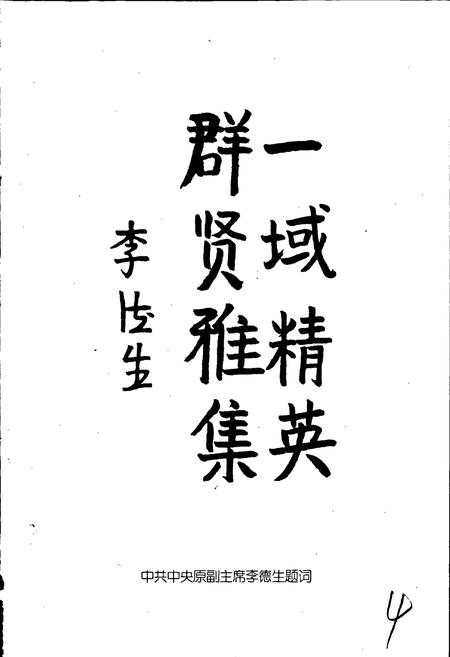 一域精英
群贤雅集
李德生
中共中央原副主席李德生题词
4